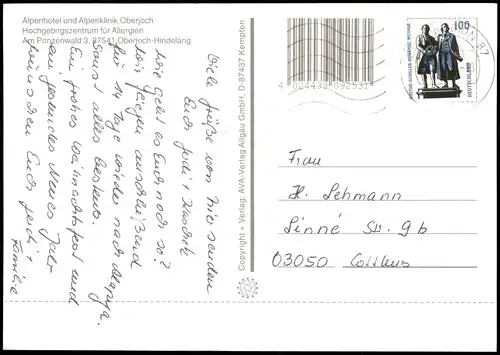 Alpenhotel und Alpenklinik Oberjoch
Hochgebirgszentrum für Allergien
Am Prinzenwald 3, 87541 Oberjoch-Hindelang
Viele Grüße von hier senden
Euch Jodi +
Wie geht es Euch noch so?
Wir fliegen anschließend
für 14 Tage wieder nach
Sonst alles bestens.
Ein frohes Weihnachtsfest und
ein gesundes Neues Jahr
wünschen Euch Jodi +
Familie
Copyright + Verlag, AVA-Verlag Allgäu GmbH, D-87437 Kempten
4 024439 092531
100
GOETHE-SCHILLER-DENKMAL WEIMAR
DEUTSCHLAND
87
Frau
H. Lehmann
Linné Str. 9b
03050 Cottbus